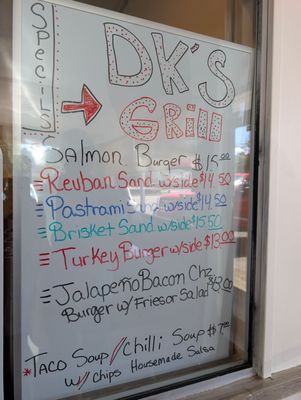 Specials
DK's
Grill
Salmon Burger $15.00
Reuban Sand w/side $14.50
Pastrami Sand w/side $14.50
Brisket Sand w/side $15.50
Turkey Burger w/side $13.00
Jalapeño Bacon Chz
Burger w/ Fries or Salad $13.00
Taco Soup // Chilli Soup $7.00
* w/ Chips Housemade Salsa